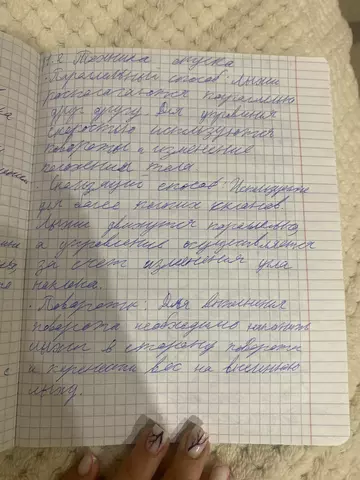 Техника спуска
Параллельный способ: Лыжи
располагаются параллельно
друг другу. Для управления
скоростью используются
повороты и изменение
положения тела
способ: Используется
для более пологих склонов.
Лыжи движутся параллельно,
а управление осуществляется
за счет изменения угла
наклона.
· Повороты: Для выполнения
поворота необходимо наклонить
лыжи в сторону поворота
и перенести вес на внешнюю
лыжу.